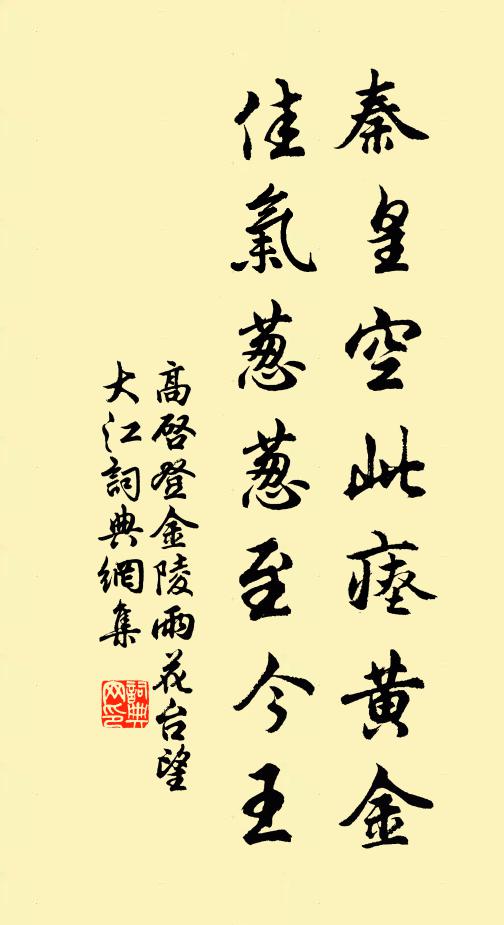 秦皇空此瘞黃金
佳氣蔥蔥至今王
高啓登金陵雨花台望
大江詞典網集
詞典
网印